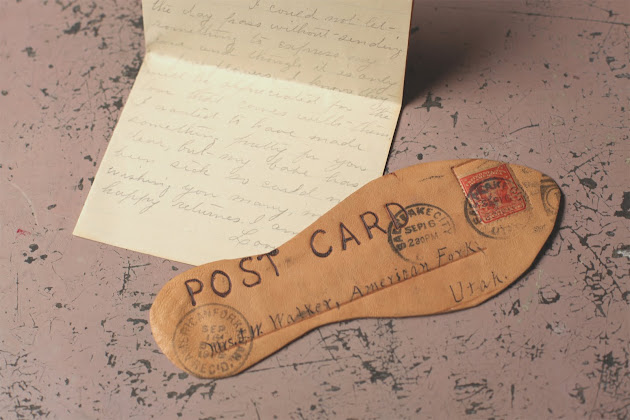 I could not let
the day pass without sending
something to express my
and though it is only
will be appreciated for the
love that comes with it.
I wanted to have made
something pretty for you
dear, but my babe has
been sick so could n
wishing you many, m
happy returns I am
Lov
POST CARD
SALT LAKE CITY
SEP 16
2 30 PM
UTAH
Mrs. J. W. Walker, American Fork,
Utah.
AMERICAN FORK
SEP
REC'D.